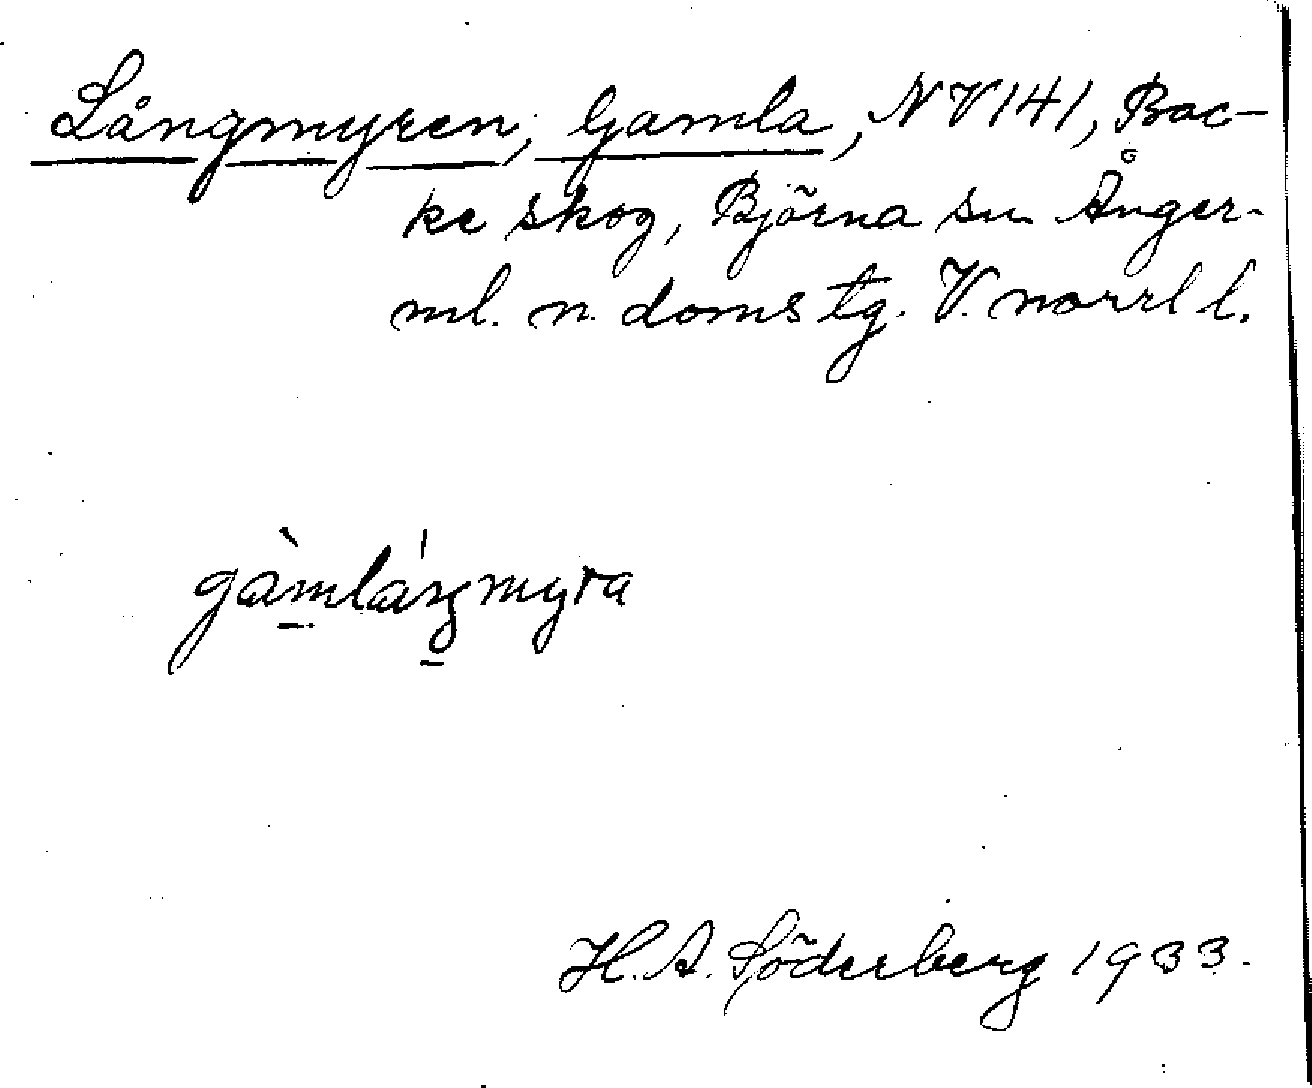 Långmyren, Gamla, NV141, Bac-
ke skog, Björna sn Ånger-
ml. n. doms tg. V. norrl l.
gàmláŋmyra
H. A. Söderberg 1933.